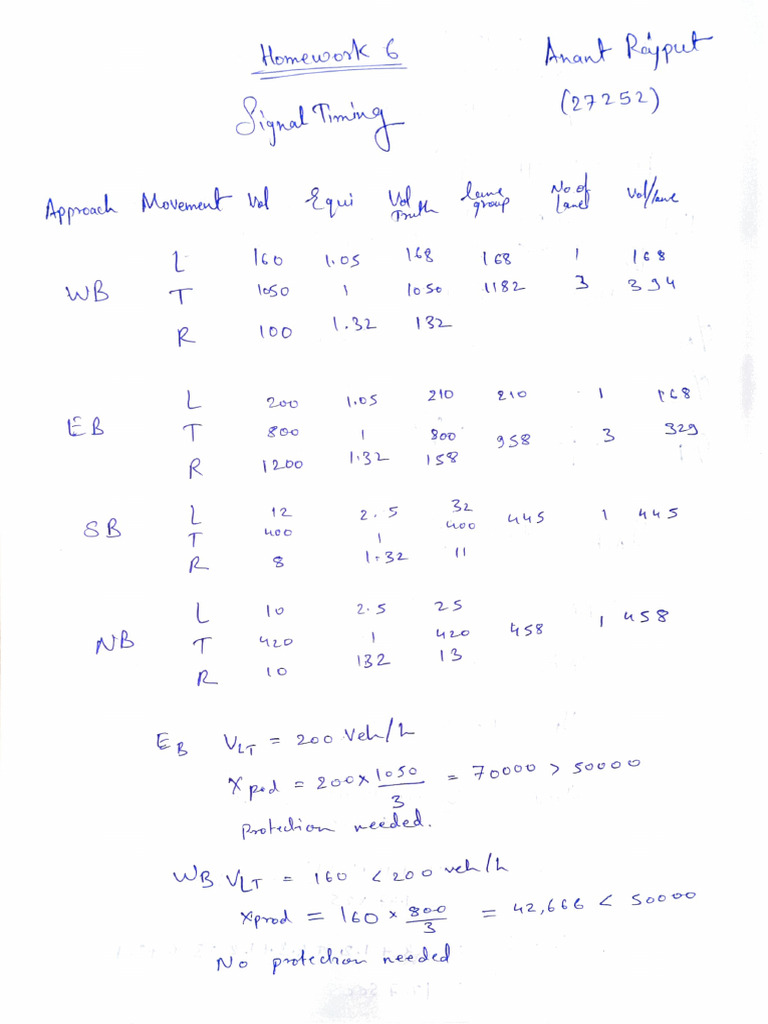 Homework 6
Anant Rajput
(27252)
Signal Timing
Approach Movement Vol Equi Vol Truth lane group No of Lane Vol/lane
L 160 1.05 168 168 1 168
WB T 1050 1 1050 1182 3 394
R 100 1.32 132
L 200 1.05 210 210 1 168
EB T 800 1 800 958 3 329
R 1200 1.32 158
L 12 2.5 32
SB T 400 1 400 445 1 445
R 8 1.32 11
L 10 2.5 25
NB T 420 1 420 458 1 458
R 10 132 13
EB VLT = 200 Veh/h
Xprod = 200 × 1050/3 = 70000 > 50000
protection needed.
WB VLT = 160 < 200 veh/h
xprod = 160 × 800/3 = 42,666 < 50000
No protection needed